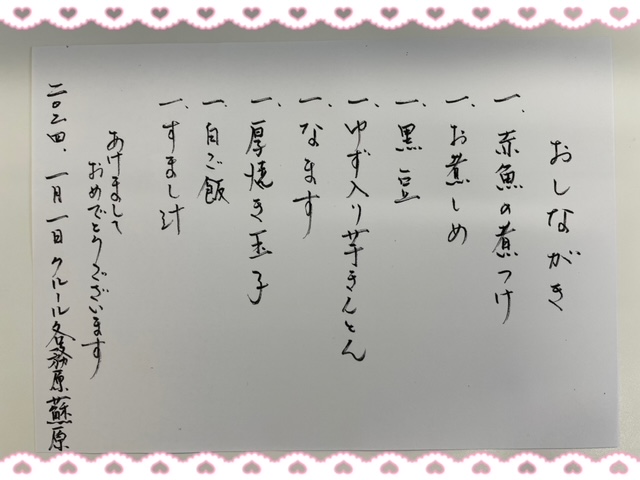 おしながき
一、赤魚の煮つけ
一、お煮しめ
一、黒豆
一、ゆず入り芋きんとん
一、なます
一、厚焼き玉子
一、白ご飯
一、すまし汁
あけまして
おめでとうございます
二〇二四、一月一日クルール各務原蘇原